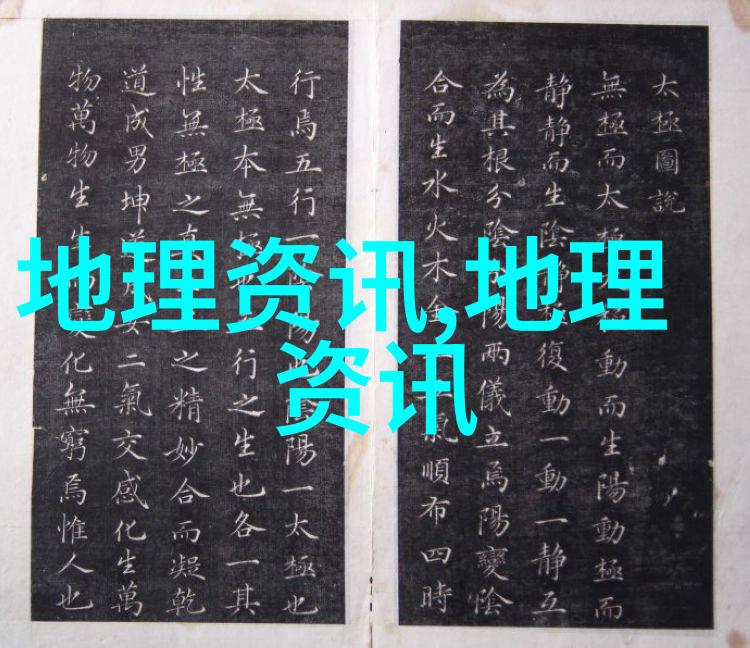 太極圖說
無極而太極動而生陽動極而
静静而生陰静極復動一動一静互
為其根分陰陽兩儀立焉陽變陰
合而生水火木金氣順布四時
行焉五行一陰陽陰陽一太極也
太極本無極行之生也各一其
性無極之真之精妙合而凝乾
道成男坤道成女二氣交感化生萬
物萬物生生而變化無窮焉惟人也
地理资讯,地理
资讯